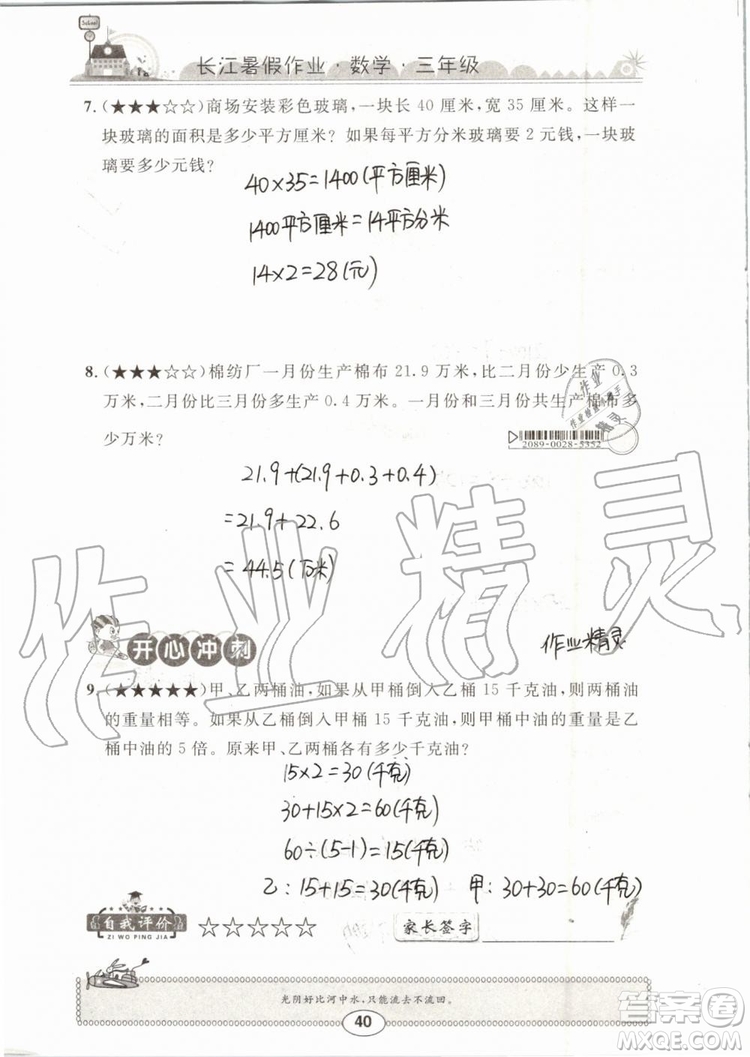 School
长江暑假作业·数学·三年级
7.(★★★☆☆)商场安装彩色玻璃,一块长 40 厘米,宽 35 厘米。这样一
块玻璃的面积是多少平方厘米?如果每平方分米玻璃要 2 元钱,一块玻
璃要多少元钱?
40×35=1400(平方厘米)
1400平方厘米=14平方分米
14×2=28(元)
8.(★★★☆☆)棉纺厂一月份生产棉布 21.9 万米,比二月份少生产 0.3
万米,二月份比三月份多生产 0.4 万米。一月份和三月份共生产棉布多
少万米?
2089-0028-5352
21.9+(21.9+0.3+0.4)
=21.9+22.6
=44.5(万米)
作业精灵
开心冲刺
作业精灵
9.(★★★★★)甲、乙两桶油,如果从甲桶倒入乙桶 15 千克油,则两桶油
的重量相等。如果从乙桶倒入甲桶 15 千克油,则甲桶中油的重量是乙
桶中油的 5 倍。原来甲、乙两桶各有多少千克油?
15×2=30(千克)
30+15×2=60(千克)
60÷(5-1)=15(千克)
乙:15+15=30(千克) 甲:30+30=60(千克)
自我评价
ZI WO PING JIA
☆☆☆☆☆
家长签字
光阴好比河中水,只能流去不流回。
40
答案圈
MXQE.COM